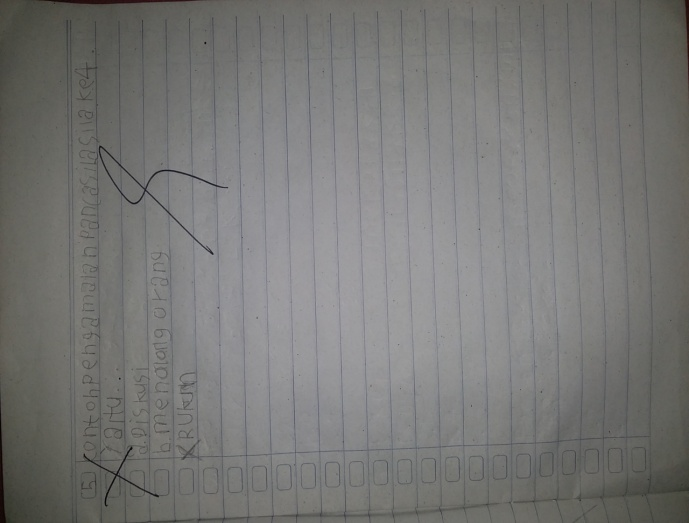 5. contoh pengamalan pancasila sila ke 4.
Yaitu...
a. Diskusi
b. menolong orang
X Rukun